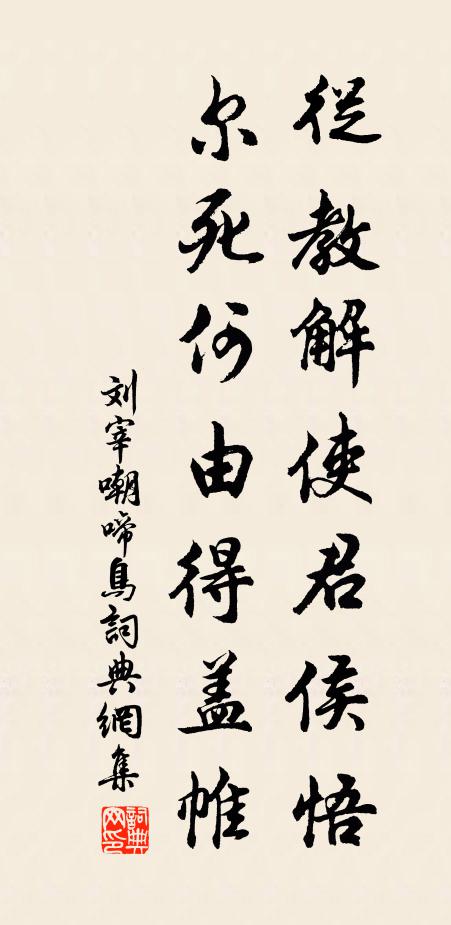 從教解使君侯悟
尔死何由得盖帷
刘宰嘲啼鳥詞典網集
詞典網印